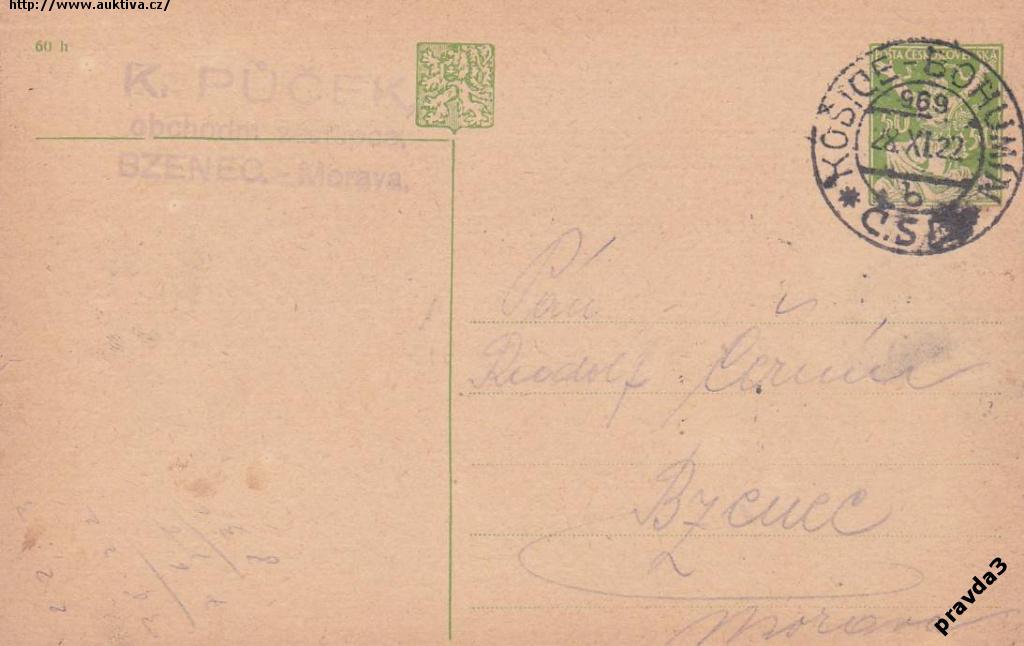 http://www.auktiva.cz/
60 h
K. PŮČEK,
obchodní zástupce.
BZENEC. - Morava.
POŠTA ČESKOSLOVENSKÁ
50
KOŠICE BOHUMÍN
969
28.XI.22
b
Č.S.
Pán
Rudolf
Bzenec
Morava
pravda3